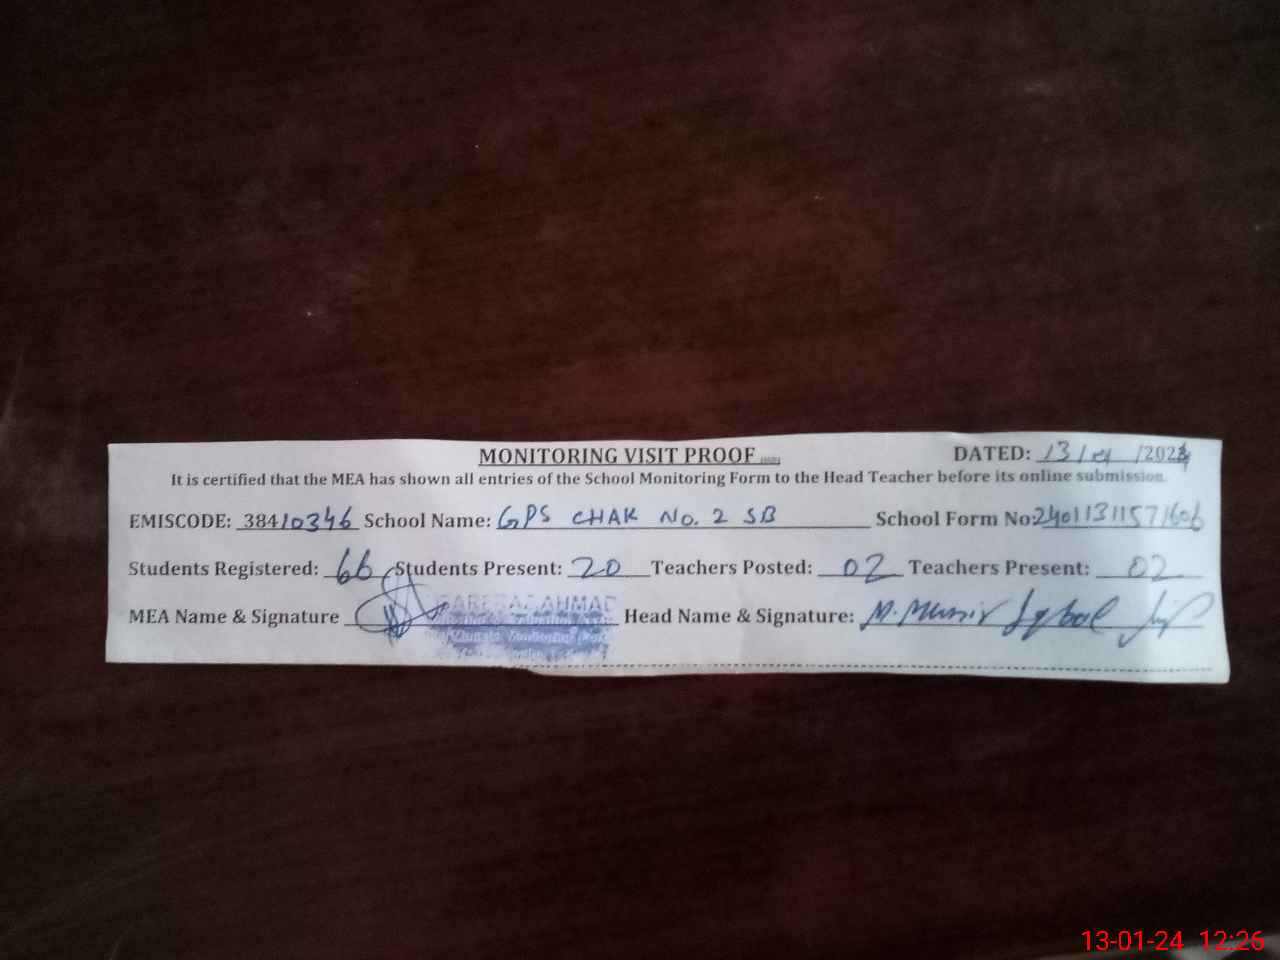 MONITORING VISIT PROOF DATED: 13/01/2024
It is certified that the MEA has shown all entries of the School Monitoring Form to the Head Teacher before its online submission.
EMISCODE: 38410346 School Name: GPS CHAK No. 2 SB School Form No: 24011311571606
Students Registered: 66 Students Present: 20 Teachers Posted: 02 Teachers Present: 02
MEA Name & Signature AHMAD Head Name & Signature: M. Munir Iqbal
13-01-24 12:26